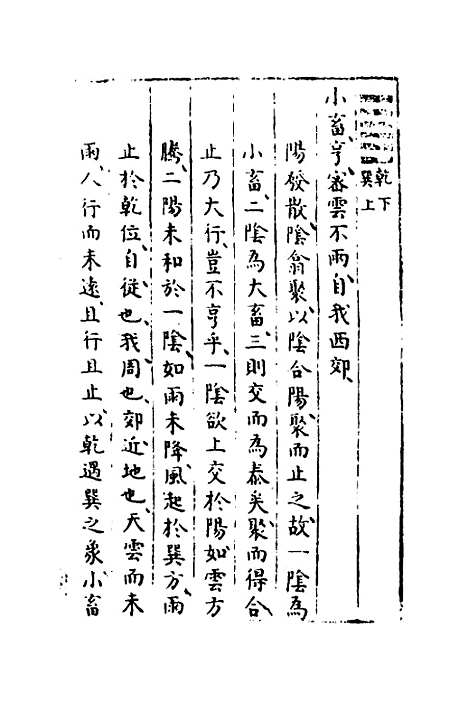 乾下
巽上
小畜亨密雲不雨自我西郊
陽發散陰翕聚以陰合陽聚而止之故一陰為
小畜二陰為大畜三則交而為泰矣聚而得合
止乃大行豈不亨乎一陰欲上交於陽如雲方
騰二陽未和於一陰如雨未降風起於巽方雨
止於乾位自從也我周也郊近地也天雲而未
雨人行而未遠且行且止以乾遇巽之象小畜